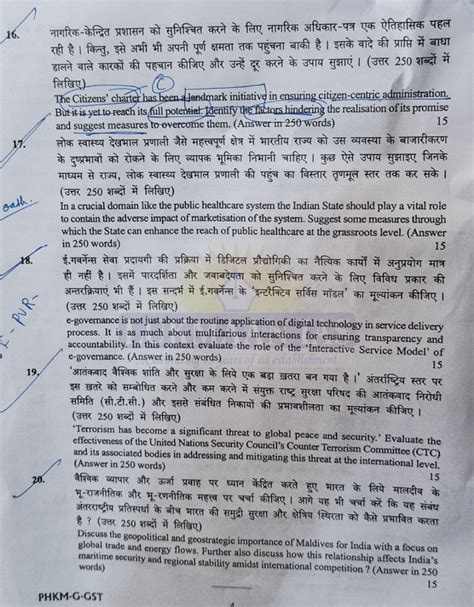 16. नागरिक-केन्द्रित प्रशासन को सुनिश्चित करने के लिए नागरिक अधिकार-पत्र एक ऐतिहासिक पहल
रही है । किन्तु, इसे अभी भी अपनी पूर्ण क्षमता तक पहुंचना बाकी है । इसके वादे की प्राप्ति में बाधा
डालने वाले कारकों की पहचान कीजिए और उन्हें दूर करने के उपाय सुझाएं । (उत्तर 250 शब्दों में
लिखिए)
The Citizens' charter has been a landmark initiative in ensuring citizen-centric administration.
But it is yet to reach its full potential. Identify the factors hindering the realisation of its promise
and suggest measures to overcome them. (Answer in 250 words) 15
17. लोक स्वास्थ्य देखभाल प्रणाली जैसे महत्त्वपूर्ण क्षेत्र में भारतीय राज्य को उस व्यवस्था के बाजारीकरण
के दुष्प्रभावों को रोकने के लिए व्यापक भूमिका निभानी चाहिए । कुछ ऐसे उपाय सुझाइए जिनके
माध्यम से राज्य, लोक स्वास्थ्य देखभाल प्रणाली की पहुंच का विस्तार तृणमूल स्तर तक कर सके ।
(उत्तर 250 शब्दों में लिखिए)
In a crucial domain like the public healthcare system the Indian State should play a vital role
to contain the adverse impact of marketisation of the system. Suggest some measures through
which the State can enhance the reach of public healthcare at the grassroots level. (Answer
in 250 words) 15
18. ई.गवर्नेन्स सेवा प्रदायगी की प्रक्रिया में डिजिटल प्रौद्योगिकी का नैत्यिक कार्यों में अनुप्रयोग मात्र
ही नहीं है । इसमें पारदर्शिता और जवाबदेयता को सुनिश्चित करने के लिए विविध प्रकार की
अन्तरक्रियाएं भी हैं । इस सन्दर्भ में ई.गवर्नेन्स के 'इन्टरैक्टिव सर्विस मॉडल' का मूल्यांकन कीजिए ।
(उत्तर 250 शब्दों में लिखिए)
e-governance is not just about the routine application of digital technology in service delivery
process. It is as much about multifarious interactions for ensuring transparency and
accountability. In this context evaluate the role of the 'Interactive Service Model' of
e-governance. (Answer in 250 words) 15
19. 'आतंकवाद वैश्विक शांति और सुरक्षा के लिए एक बड़ा ख़तरा बन गया है ।' अंतर्राष्ट्रिय स्तर पर
इस खतरे को सम्बोधित करने और कम करने में संयुक्त राष्ट्र सुरक्षा परिषद की आतंकवाद निरोधी
समिति (सी.टी.सी.) और इससे संबंधित निकायों की प्रभावशीलता का मूल्यांकन कीजिए ।
(उत्तर 250 शब्दों में लिखिए)
'Terrorism has become a significant threat to global peace and security.' Evaluate the
effectiveness of the United Nations Security Council's Counter Terrorism Committee (CTC)
and its associated bodies in addressing and mitigating this threat at the international level.
(Answer in 250 words) 15
20. वैश्विक व्यापार और ऊर्जा प्रवाह पर ध्यान केंद्रित करते हुए भारत के लिये मालदीव के
भू-राजनीतिक और भू-रणनीतिक महत्व पर चर्चा कीजिए । आगे यह भी चर्चा करें कि यह संबंध
अंतराष्ट्रीय प्रतिस्पर्धा के बीच भारत की समुद्री सुरक्षा और क्षेत्रिय स्थिरता को कैसे प्रभावित करता
है ? (उत्तर 250 शब्दों में लिखिए)
Discuss the geopolitical and geostrategic importance of Maldives for India with a focus on
global trade and energy flows. Further also discuss how this relationship affects India's
maritime security and regional stability amidst international competition ? (Answer in 250
words) 15
PHKM-G-GST
4